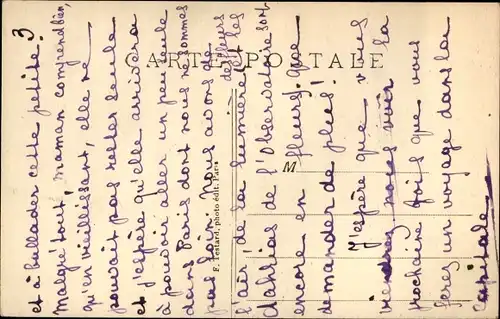 CARTE POSTALE
3
et à ballader cette petite.
Malgré tout, maman comprend bien,
qu'en vieillissant, elle ne
pouvait pas rester seule
et j'espère qu'elle arrivera
à pouvoir aller un peu seule
dans Paris dont nous ne sommes
pas loin. Nous avons de
l'air de la lumière et les
des fleurs
dahlias de l'Observatoire sont
encore en fleurs. Que
demander de plus!
J'espère que vous
viendrez nous voir la
prochaine fois que vous
ferez un voyage dans la
Capitale.
M
F. Testard, photo édit. Paris